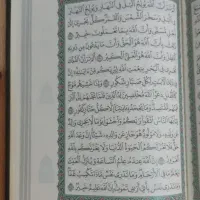 أَلَمْ تَرَ أَنَّ ٱللَّهَ يُولِجُ ٱلَّيْلَ فِى ٱلنَّهَارِ وَيُولِجُ ٱلنَّهَارَ فِى
ٱلَّيْلِ وَسَخَّرَ ٱلشَّمْسَ وَٱلْقَمَرَ كُلٌّ يَجْرِىٓ إِلَىٰٓ أَجَلٍ
مُّسَمًّى وَأَنَّ ٱللَّهَ بِمَا تَعْمَلُونَ خَبِيرٌ ٢٩ ذَٰلِكَ
بِأَنَّ ٱللَّهَ هُوَ ٱلْحَقُّ وَأَنَّ مَا يَدْعُونَ مِن دُونِهِ ٱلْبَٰطِلُ
وَأَنَّ ٱللَّهَ هُوَ ٱلْعَلِىُّ ٱلْكَبِيرُ ٣٠ أَلَمْ تَرَ أَنَّ ٱلْفُلْكَ
تَجْرِى فِى ٱلْبَحْرِ بِنِعْمَتِ ٱللَّهِ لِيُرِيَكُم مِّنْ ءَايَٰتِهِۦٓ إِنَّ
فِى ذَٰلِكَ لَءَايَٰتٍ لِّكُلِّ صَبَّارٍ شَكُورٍ ٣١ وَإِذَا غَشِيَهُم مَّوْجٌ
كَٱلظُّلَلِ دَعَوُا۟ ٱللَّهَ مُخْلِصِينَ لَهُ ٱلدِّينَ فَلَمَّا نَجَّىٰهُمْ إِلَى ٱلْبَرِّ
فَمِنْهُم مُّقْتَصِدٌ وَمَا يَجْحَدُ بِـَٔايَٰتِنَآ إِلَّا كُلُّ خَتَّارٍ كَفُورٍ
٣٢ يَٰٓأَيُّهَا ٱلنَّاسُ ٱتَّقُوا۟ رَبَّكُمْ وَٱخْشَوْا۟ يَوْمًا لَّا يَجْزِى
وَالِدٌ عَن وَلَدِهِۦ وَلَا مَوْلُودٌ هُوَ جَازٍ عَن وَالِدِهِۦ شَيْـًٔا إِنَّ وَعْدَ
ٱللَّهِ حَقٌّ فَلَا تَغُرَّنَّكُمُ ٱلْحَيَوٰةُ ٱلدُّنْيَا وَلَا يَغُرَّنَّكُم بِٱللَّهِ
ٱلْغَرُورُ ٣٣ إِنَّ ٱللَّهَ عِندَهُۥ عِلْمُ ٱلسَّاعَةِ وَيُنَزِّلُ ٱلْغَيْثَ
وَيَعْلَمُ مَا فِى ٱلْأَرْحَامِ وَمَا تَدْرِى نَفْسٌ مَّاذَا تَكْسِبُ غَدًا
وَمَا تَدْرِى نَفْسٌۢ بِأَىِّ أَرْضٍ تَمُوتُ إِنَّ ٱللَّهَ عَلِيمٌ خَبِيرٌۢ ٣٤